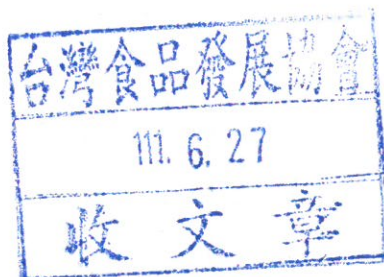 台灣食品發展協會
111. 6. 27
收文章